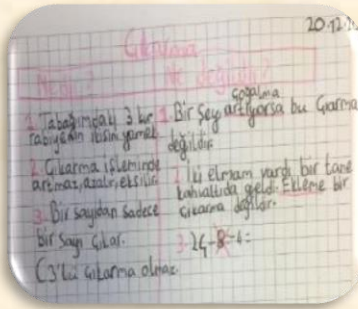 20.12.20
Çıkarma
Nedir?
1. Tabağımdaki 3 kur
rabiyenin ikisini yemek
2. Çıkarma işleminde
artmaz, azalır, eksilir.
3. Bir sayıdan sadece
bir sayı çıkar.
(3'lü çıkarma olmaz.
Ne değildir?
çoğalma
1. Bir şey artıyorsa bu çıkarma
değildir.
2. İki elmam vardı bir tane
kahvaltıda geldi. Ekleme bir
çıkarma değildir.
3. 24-8-4=